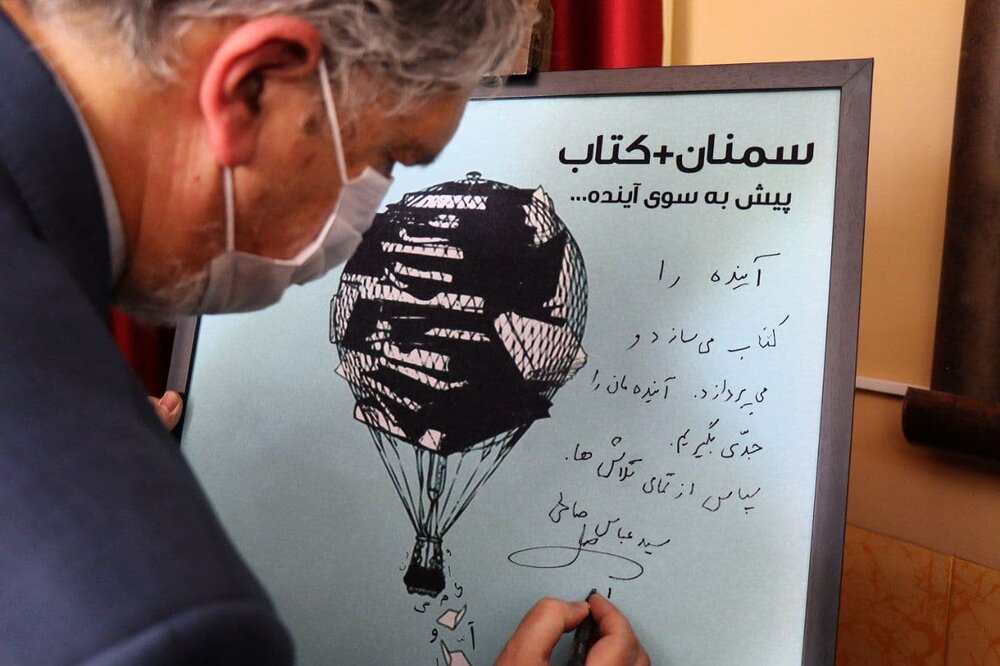 سمنان+کتاب
پیش به سوی آینده...
آینده را
کتاب می‌سازد و
می‌پردازد. آینده‌مان را
جدّی بگیریم.
سپاس از تمامی تلاش‌ها.
سید عباس صالحی